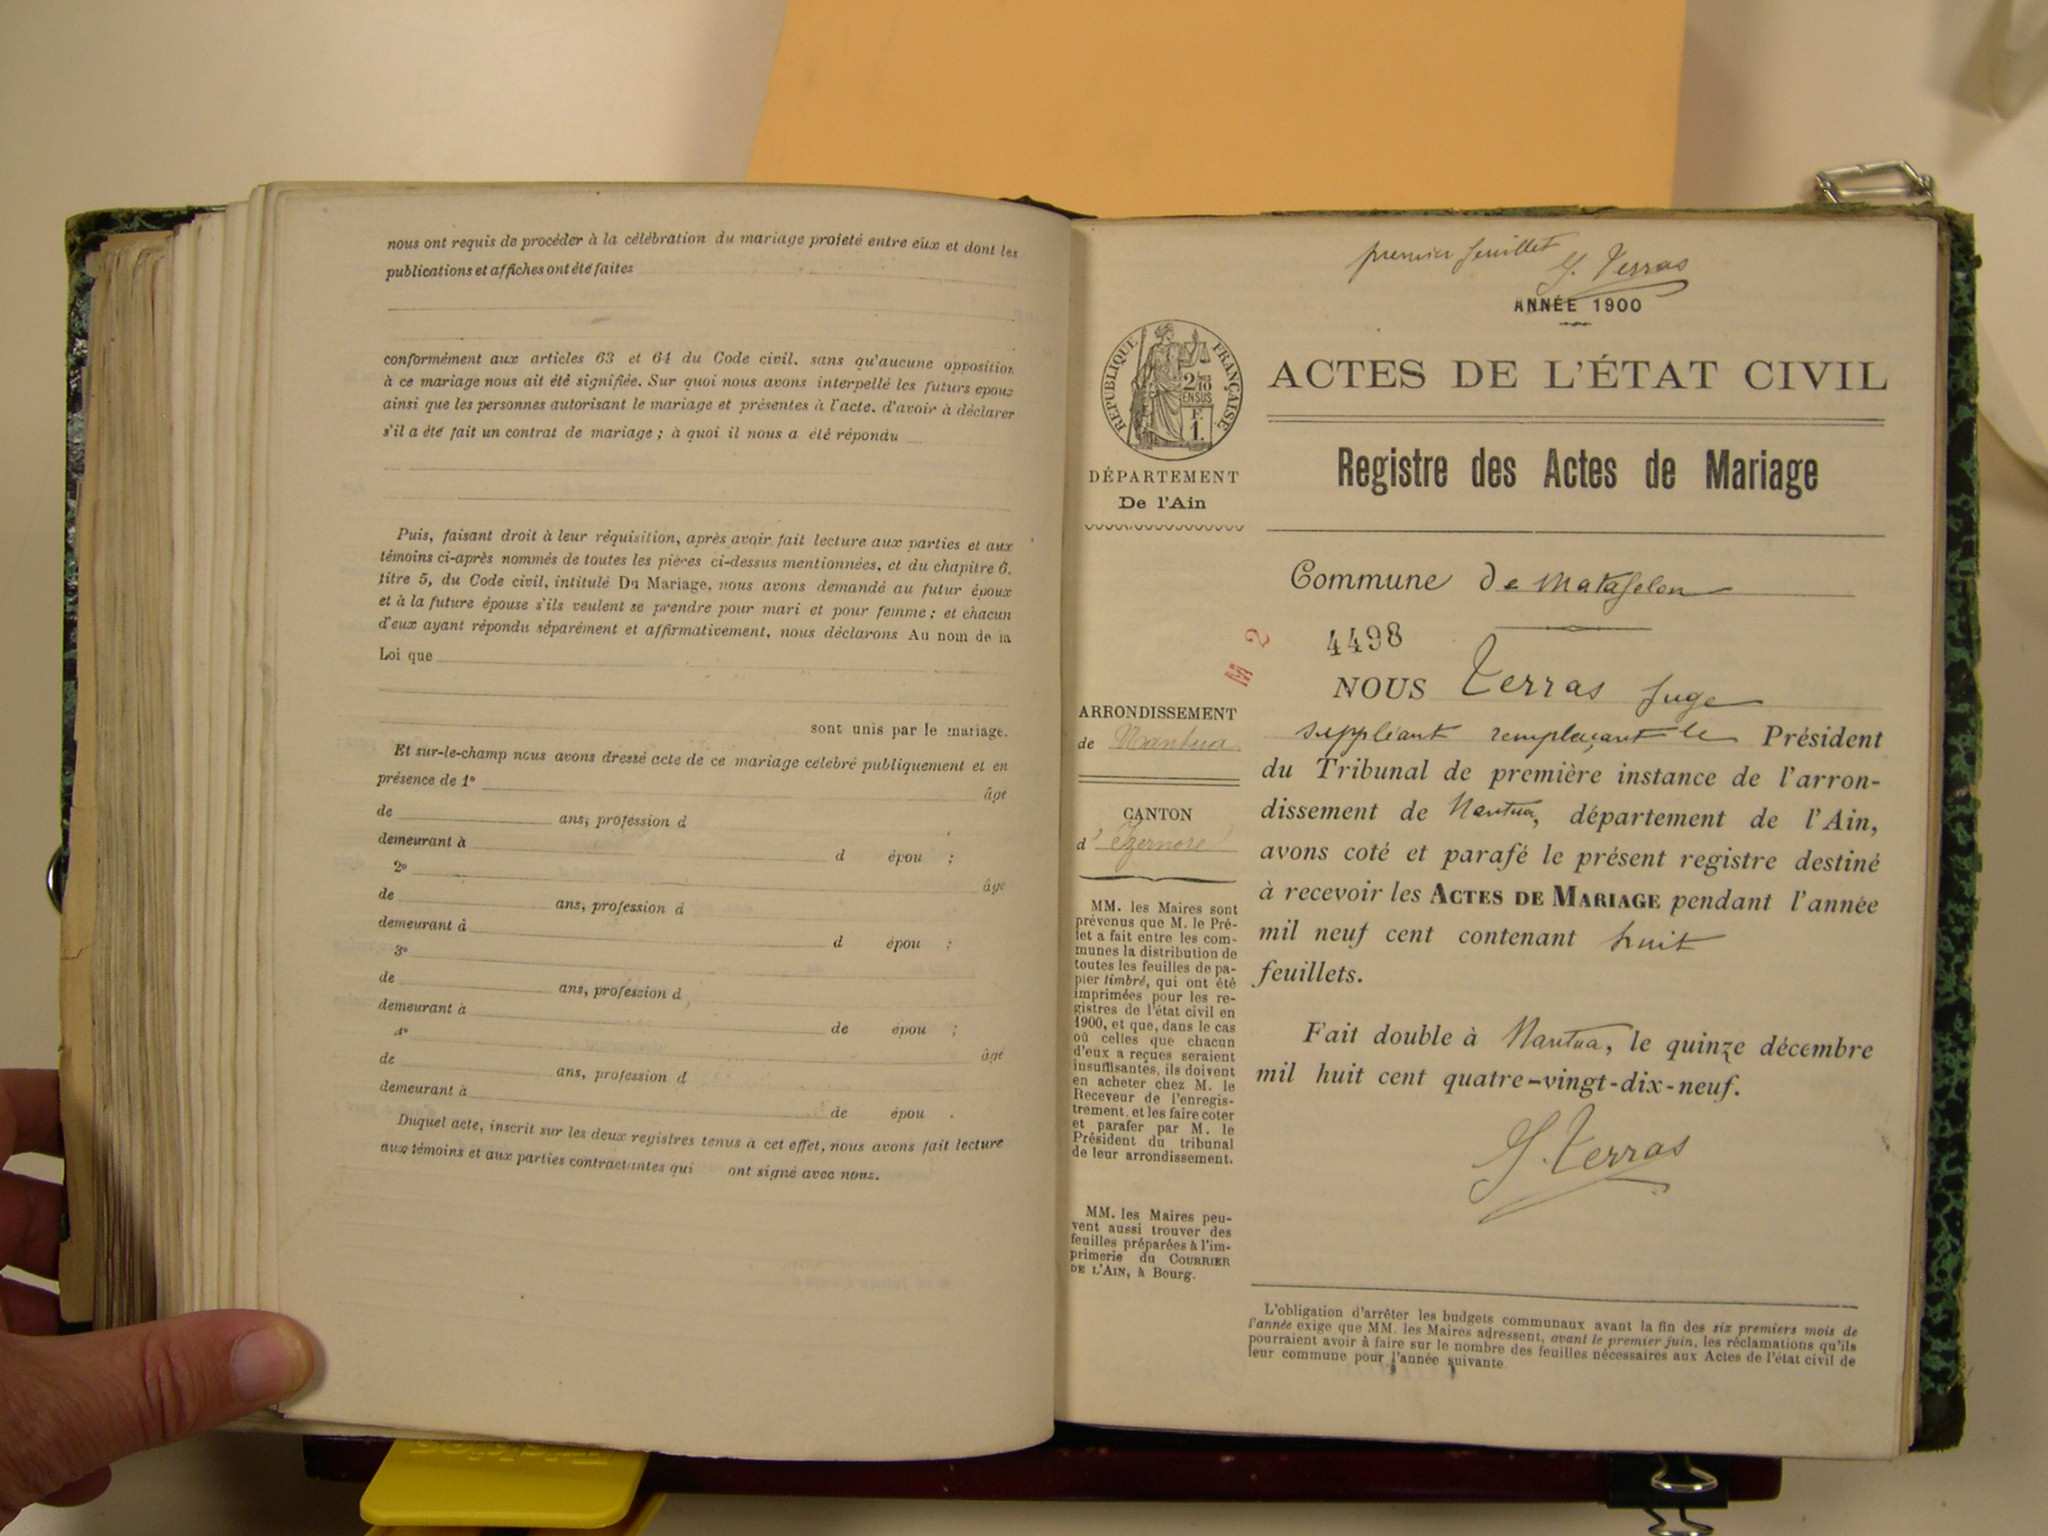 nous ont requis de procéder à la célébration du mariage projeté entre eux et dont les
publications et affiches ont été faites
conformément aux articles 63 et 64 du Code civil, sans qu'aucune opposition
à ce mariage nous ait été signifiée. Sur quoi nous avons interpellé les futurs epoux
ainsi que les personnes autorisant le mariage et présentes à l'acte, d'avoir à déclarer
s'il a été fait un contrat de mariage ; à quoi il nous a été répondu
Puis, faisant droit à leur réquisition, après avoir fait lecture aux parties et aux
témoins ci-après nommés de toutes les pièces ci-dessus mentionnées, et du chapitre 6,
titre 5, du Code civil, intitulé Du Mariage, nous avons demandé au futur époux
et à la future épouse s'ils veulent se prendre pour mari et pour femme ; et chacun
d'eux ayant répondu séparément et affirmativement, nous déclarons Au nom de la
Loi que
sont unis par le mariage.
Et sur-le-champ nous avons dressé acte de ce mariage célébré publiquement et en
présence de 1º âgé
de ans, profession d
demeurant à d épou ;
2º âgé
de ans, profession d
demeurant à d épou ;
3º
de ans, profession d
demeurant à de épou ;
4º âgé
de ans, profession d
demeurant à de épou .
Duquel acte, inscrit sur les deux registres tenus à cet effet, nous avons fait lecture
aux témoins et aux parties contractantes qui ont signé avec nous.
premier feuillet
G. Terras
ANNÉE 1900
RÉPUBLIQUE FRANÇAISE
2/10
EN SUS
F.
1.
DÉPARTEMENT
De l'Ain
ACTES DE L'ÉTAT CIVIL
Registre des Actes de Mariage
Commune de Matafelon
4498
M 2
NOUS Terras Juge
suppléant remplaçant le Président
du Tribunal de première instance de l'arron-
dissement de Nantua, département de l'Ain,
avons coté et parafé le présent registre destiné
à recevoir les ACTES DE MARIAGE pendant l'année
mil neuf cent contenant huit
feuillets.
Fait double à Nantua, le quinze décembre
mil huit cent quatre-vingt-dix-neuf.
G. Terras
ARRONDISSEMENT
de Nantua
CANTON
d'Izernore
MM. les Maires sont
prévenus que M. le Pré-
fet a fait entre les com-
munes la distribution de
toutes les feuilles de pa-
pier timbré, qui ont été
imprimées pour les re-
gistres de l'état civil en
1900, et que, dans le cas
où celles que chacun
d'eux a reçues seraient
insuffisantes, ils doivent
en acheter chez M. le
Receveur de l'enregis-
trement, et les faire coter
et parafer par M. le
Président du tribunal
de leur arrondissement.
MM. les Maires peu-
vent aussi trouver des
feuilles préparées à l'im-
primerie du COURRIER
DE L'AIN, à Bourg.
L'obligation d'arrêter les budgets communaux avant la fin des six premiers mois de
l'année exige que MM. les Maires adressent, avant le premier juin, les réclamations qu'ils
pourraient avoir à faire sur le nombre des feuilles nécessaires aux Actes de l'état civil de
leur commune pour l'année suivante